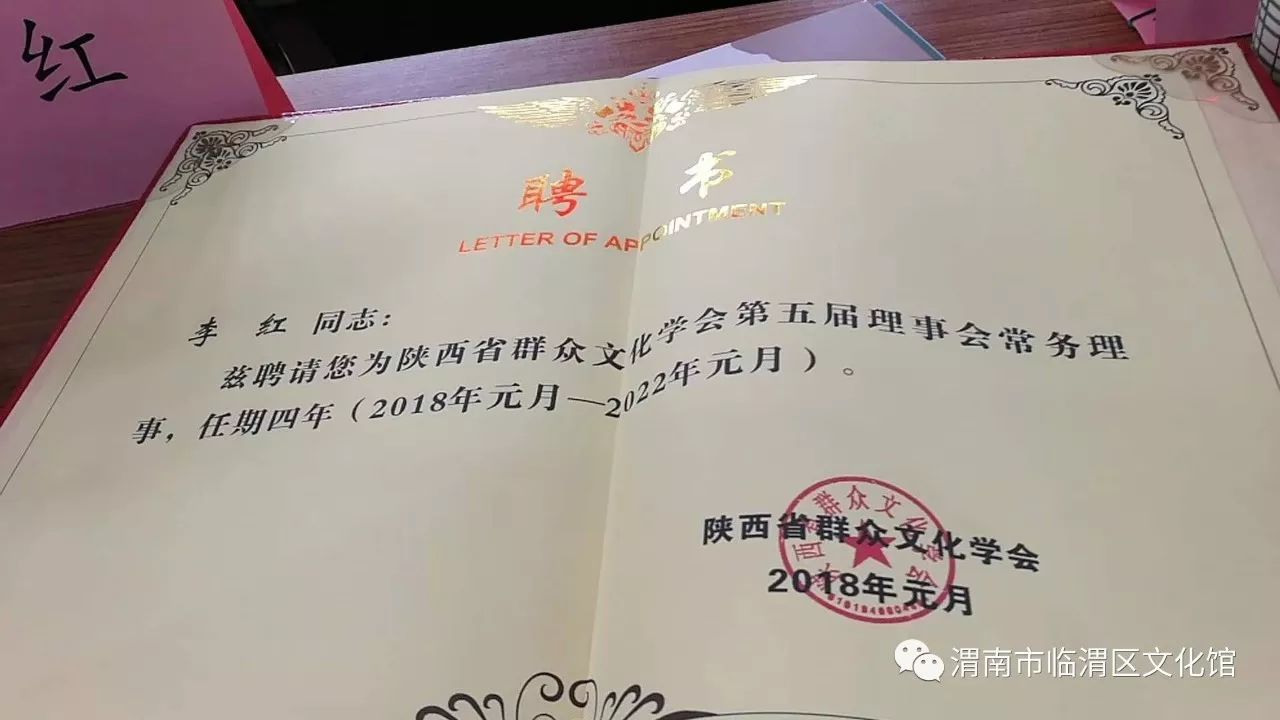 红
聘 书
LETTER OF APPOINTMENT
李 红 同志:
兹聘请您为陕西省群众文化学会第五届理事会常务理
事，任期四年（2018年元月—2022年元月）。
陕西省群众文化学会
陕西省群众文化学会
2018年元月
渭南市临渭区文化馆